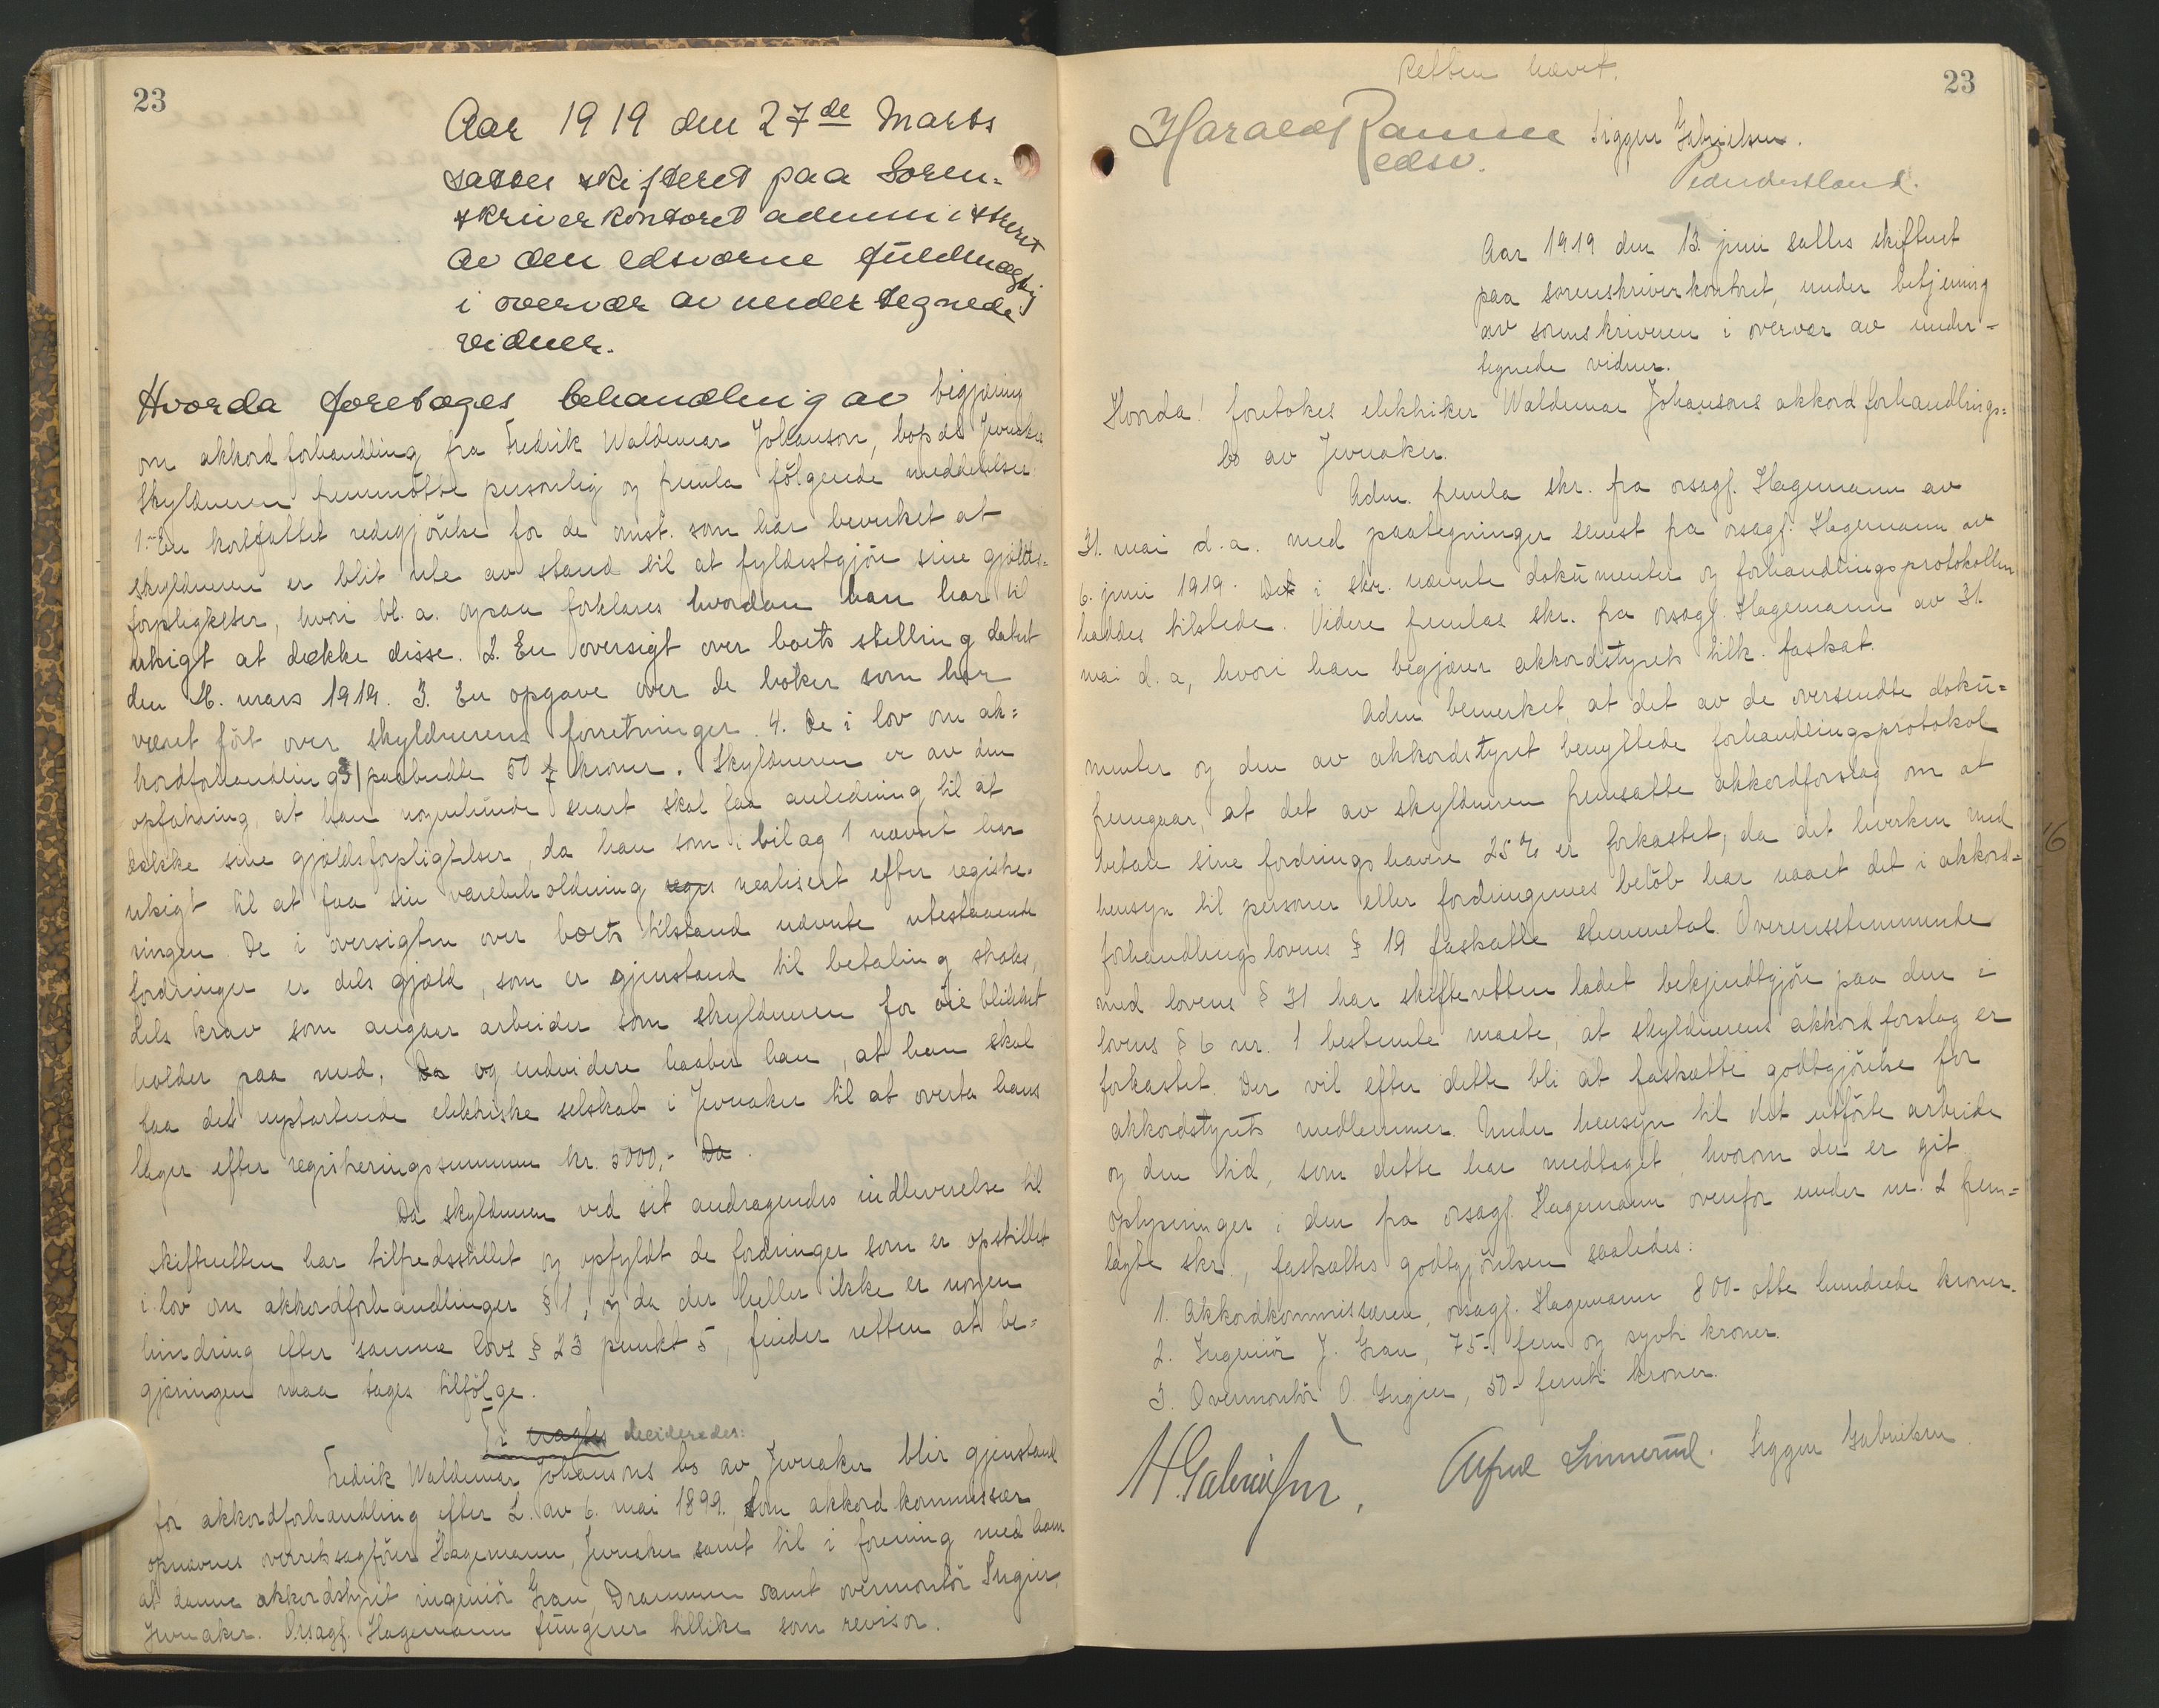 23
Aar 1919 den 27de Marts
sattes skifteret paa Soren-
skriverkontoret administreret
av den edsvorne fuldmægtig
i overvær av undertegnede
vidner.
Hvorda foretoges behandling av begjæring
om akkordforhandling fra Fredrik Waldemar Johanson, bopæl Jevnaker
Skyldneren fremmøtte personlig og fremla følgende meddelelser
1. En kortfattet redegjørelse for de omst. som har bevirket at
skyldneren er blit ute av stand til at fyldestgjøre sine gjælds-
forpligtelser, hvori bl. a. ogsaa forklares hvordan han har til
utsigt at dække disse. 2. En oversigt over boets stilling datert
den 16. mars 1919. 3. En opgave over de bøker som har
været ført over skyldnerens forretninger. 4. De i lov om ak-
kordforhandling § 1 paabudte 50 kroner. Skyldneren er av den
opfatning, at han nogenlunde snart skal faa anledning til at
dække sine gjældsforpligtelser, da han som i bilag 1 nævnt har
utsigt til at faa sin varebeholdning realisert efter registre-
ringen. De i oversigten over boets tilstand nævnte utestaaende
fordringer er dels gjæld, som er gjenstand til betaling straks,
dels krav som angaar arbeider som skyldneren for øieblikket
holder paa med, Da og endvidere haaber han, at han skal
faa det nystartende elektriske selskab i Jevnaker til at overta hans
lager efter registreringssummen kr. 5000,- Da.
Da skyldneren ved sit andragendes indleverelse til
skifteretten har tilfredsstillet og opfyldt de fordringer som er opstillet
i lov om akkordforhandlinger § 1, og da der heller ikke er nogen
hindring efter samme lovs § 23 punkt 5, finder retten at be-
gjæringen maa tages tilfølge.
Ti decideredes:
Fredrik Waldemar Johansons bo av Jevnaker blir gjenstand
for akkordforhandling efter L. av 6. mai 1899. Som akkordkommissær
opnævnes overretssagfører Hagemann, Jevnaker samt til i forening med ham
at danne akkordstyret ingeniør Grau, Drammen samt overmontør Ingier,
Jevnaker. Orsagf. Hagemann fungerer tillike som revisor.
Retten hævet.
23
Harald Ramm Siggen Gabrielsen.
edsv.
Aar 1919 den 13 juni sattes skifteret
paa sorenskriverkontoret, under betjening
av sorenskriveren i overvær av under-
tegnede vidner.
Hvorda! foretokes elektriker Waldemar Johansons akkordforhandlings-
bo av Jevnaker.
Adm. fremla skr. fra orsagf. Hagemann av
31. mai d.a. med paategninger senest fra orsagf. Hagemann av
6. juni 1919. De i skr. nævnte dokumenter og forhandlingsprotokollen
haddes tilstede. Videre fremlas skr. fra orsagf. Hagemann av 31.
mai d. a, hvori han begjærer akkordstyrets tilk. fastsat.
Adm. bemerket, at det av de oversendte doku-
menter og den av akkordstyret benyttede forhandlingsprotokol
fremgaar, at det av skyldneren fremsatte akkordforslag om at
betale sine fordringshavere 25% er forkastet, da det hverken med
hensyn til personer eller fordringernes beløb har naaet det i akkord-
forhandlingslovens § 19 fastsatte stemmetal. Overensstemmende
med lovens § 31 har skifteretten ladet bekjendtgjøre paa den i
lovens § 6 nr. 1 bestemte maate, at skyldnerens akkordforslag er
forkastet. Der vil efter dette bli at fastsætte godtgjørelse for
akkordstyrets medlemmer. Under hensyn til det utførte arbeide
og den tid, som dette har medtaget, hvorom der er git
oplysninger i den fra orsagf. Hagemann ovenfor under nr. 2 frem-
lagte skr., fastsættes godtgjørelsen saaledes:
1. Akkordkommissæren, orsagf. Hagemann 800- otte hundrede kroner.
2. Ingeniør J. Grau, 75- fem og sytti kroner.
3. Overmontør O. Ingier, 50- femti kroner.
H. Gabrielsen, Alfred Linnerud. Siggen Gabrielsen